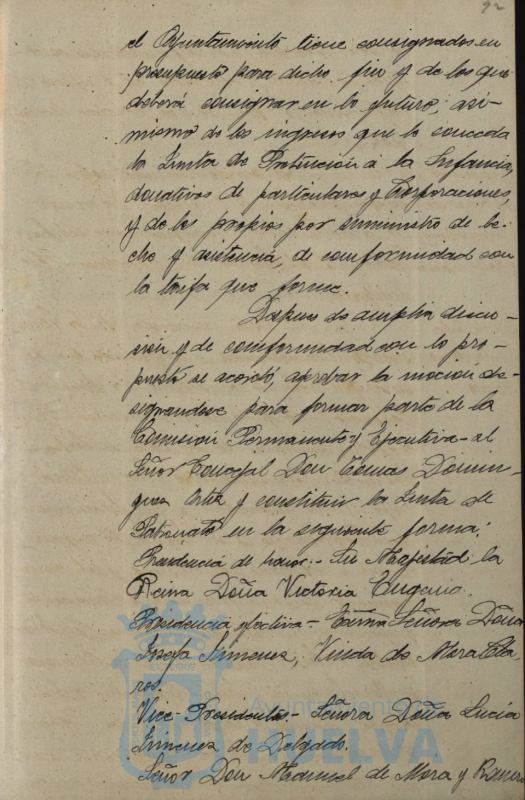 92
el Ayuntamiento tiene consignados en
presupuesto para dicho fin y de los que
deberá consignar en lo futuro; asi-
mismo de los ingresos que le conceda
la Junta de Protección á la Infancia,
donativos de particulares y Corporaciones,
y de los propios por suministro de le-
che y asistencia, de conformidad con
la tarifa que forme.
Despues de amplia discu-
sión y de conformidad con lo pro-
puesto se acordó, aprobar la moción de-
signandose para formar parte de la
Comisión Permanente y Ejecutiva al
Señor Concejal Don Tomas Domin-
guez Ortiz y constituir la Junta de
Patronato en la siguiente forma:
Presidencia de honor.- Su Majestad la
Reina Doña Victoria Eugenia.
Presidencia efectiva - Excma Señora Doña
Josefa Jimenez, Viuda de Mora Cla-
ros.
Vice-Presidentes.- Señora Doña Lucia
Jimenez de Delgado.
Señor Don Manuel de Mora y Romero
Ayuntamiento de
HUELVA